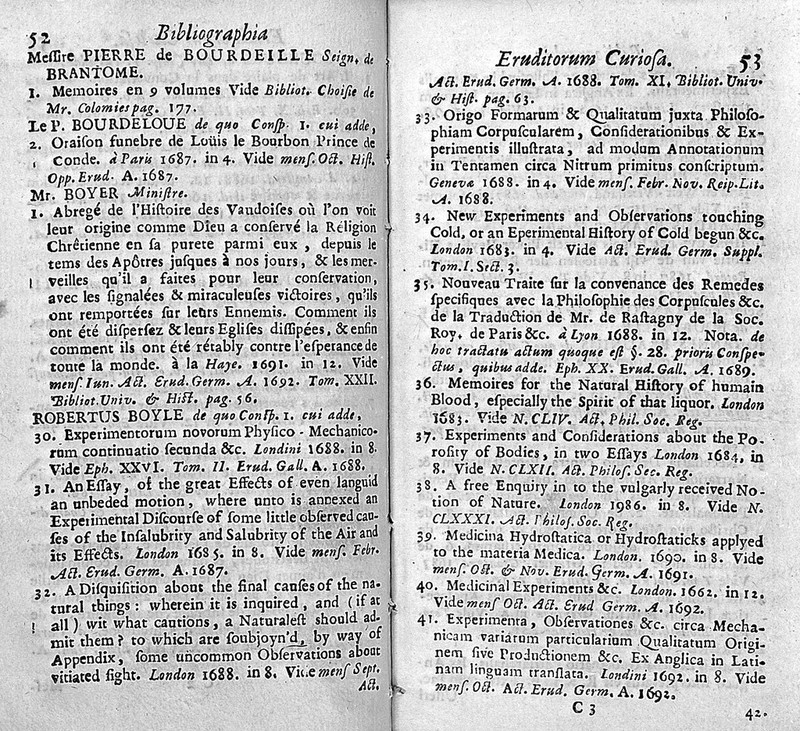 52 Bibliographia
Meſſire PIERRE de BOURDEILLE Seign. de
BRANTOME.
1. Memoires en 9 volumes Vide Bibliot. Choiſie de
Mr. Colomies pag. 177.
Le P. BOURDELOUE de quo Conſp. 1. cui adde,
2. Oraiſon funebre de Loüis le Bourbon Prince de
Conde. à Paris 1687. in 4. Vide menſ. Oct. Hiſt.
Opp. Erud. A. 1687.
Mr. BOYER Miniſtre.
1. Abregé de l'Hiſtoire des Vaudoiſes où l'on voit
leur origine comme Dieu a conſervé la Réligion
Chrêtienne en ſa purete parmi eux, depuis le
tems des Apôtres juſques à nos jours, & les mer-
veilles qu'il a faites pour leur conſervation,
avec les ſignalées & miraculeuſes victoires, qu'ils
ont remportées ſur leurs Ennemis. Comment ils
ont été diſperſez & leurs Egliſes diſſipées, & enfin
comment ils ont été rétably contre l'eſperance de
toute la monde. à la Haye. 1691. in 12. Vide
menſ. Iun. Act. Erud. Germ. A. 1692. Tom. XXII.
Bibliot. Univ. & Hiſt. pag. 56.
ROBERTUS BOYLE de quo Conſp. 1. cui adde,
30. Experimentorum novorum Phyſico-Mechanico-
rum continuatio ſecunda &c. Londini 1688. in 8.
Vide Eph. XXVI. Tom. II. Erud. Gall. A. 1688.
31. An Eſſay, of the great Effects of even languid
an unbeded motion, where unto is annexed an
Experimental Diſcourſe of ſome little obſerved cau-
ſes of the Inſalubrity and Salubrity of the Air and
its Effects. London 1685. in 8. Vide menſ. Febr.
Act. Erud. Germ. A. 1687.
32. A Diſquiſition about the final cauſes of the na-
tural things: wherein it is inquired, and (if at
all) wit what cautions, a Naturaleſt ſhould ad-
mit them? to which are ſoubjoyn'd, by way of
Appendix, ſome uncommon Obſervations about
vitiated ſight. London 1688. in 8. Vide menſ Sept.
Act.
Eruditorum Curioſa. 53
Act. Erud. Germ. A. 1688. Tom. XI. Bibliot. Univ.
& Hiſt. pag. 63.
33. Origo Formarum & Qualitatum juxta Philoſo-
phiam Corpuſcularem, Conſiderationibus & Ex-
perimentis illuſtrata, ad modum Annotationum
in Tentamen circa Nitrum primitus conſcriptum.
Genevæ 1688. in 4. Vide menſ. Febr. Nov. Reip. Lit.
A. 1688.
34. New Experiments and Obſervations touching
Cold, or an Eperimental Hiſtory of Cold begun &c.
London 1683. in 4. Vide Act. Erud. Germ. Suppl.
Tom. I. Sect. 3.
35. Nouveau Traite ſur la convenance des Remedes
ſpecifiques avec la Philoſophie des Corpuſcules &c.
de la Traduction de Mr. de Raſtagny de la Soc.
Roy. de Paris &c. à Lyon 1688. in 12. Nota. de
hoc tractatu actum quoque eſt §. 28. prioris Conſpe-
ctus, quibus adde. Eph. XX. Erud. Gall. A. 1689.
36. Memoires for the Natural Hiſtory of humain
Blood, eſpecially the Spirit of that liquor. London
1683. Vide N. CLIV. Act. Phil. Soc. Reg.
37. Experiments and Conſiderations about the Po-
roſity of Bodies, in two Eſſays London 1684. in
8. Vide N. CLXII. Act. Philoſ. Sec. Reg.
38. A free Enquiry in to the vulgarly received No-
tion of Nature. London 1986. in 8. Vide N.
CLXXXI. Act. Philoſ. Soc. Reg.
39. Medicina Hydroſtatica or Hydroſtaticks applyed
to the materia Medica. London. 1690. in 8. Vide
menſ. Oct. & Nov. Erud. Germ. A. 1691.
40. Medicinal Experiments &c. London. 1662. in 12.
Vide menſ Oct. Act. Erud Germ. A. 1692.
41. Experimenta, Obſervationes &c. circa Mecha-
nicam variarum particularium Qualitatum Origi-
nem ſive Productionem &c. Ex Anglica in Lati-
nam linguam tranſlata. Londini 1692. in 8. Vide
menſ. Oct. Act. Erud. Germ. A. 1692.
C 3
42.